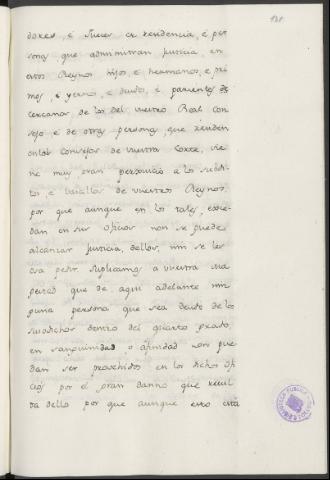 131
dores, e Jueces de residencia, é per
sonas que administran justicia, en
estos Reynos hijos, e hermanos, e pri
mos, e yernos, e deudos, e parientes
cercanos de los del vuestro Real con
sejo, e de otras personas, que residen
en los consejos de vuestra Corte, vie
ne muy gran perjuicio a los subdi
tos, e vasallos de vuestros Reynos,
por que aunque en los tales, exce
dan en sus oficios no se puede
alcanzar justicia, dellos, nin se les
osa pedir. Suplicamos a vuestra ma
gestad que de aqui adelante nin
guna persona que sea deudo de los
susodichos dentro del quarto grado,
en sanguinidad o afinidad non pue
dan ser provehidos en los dichos ofi
cios por el gran danno que resul
ta dello por que aunque esto está
BIBLIOTECA PUBLICA
TOLEDO